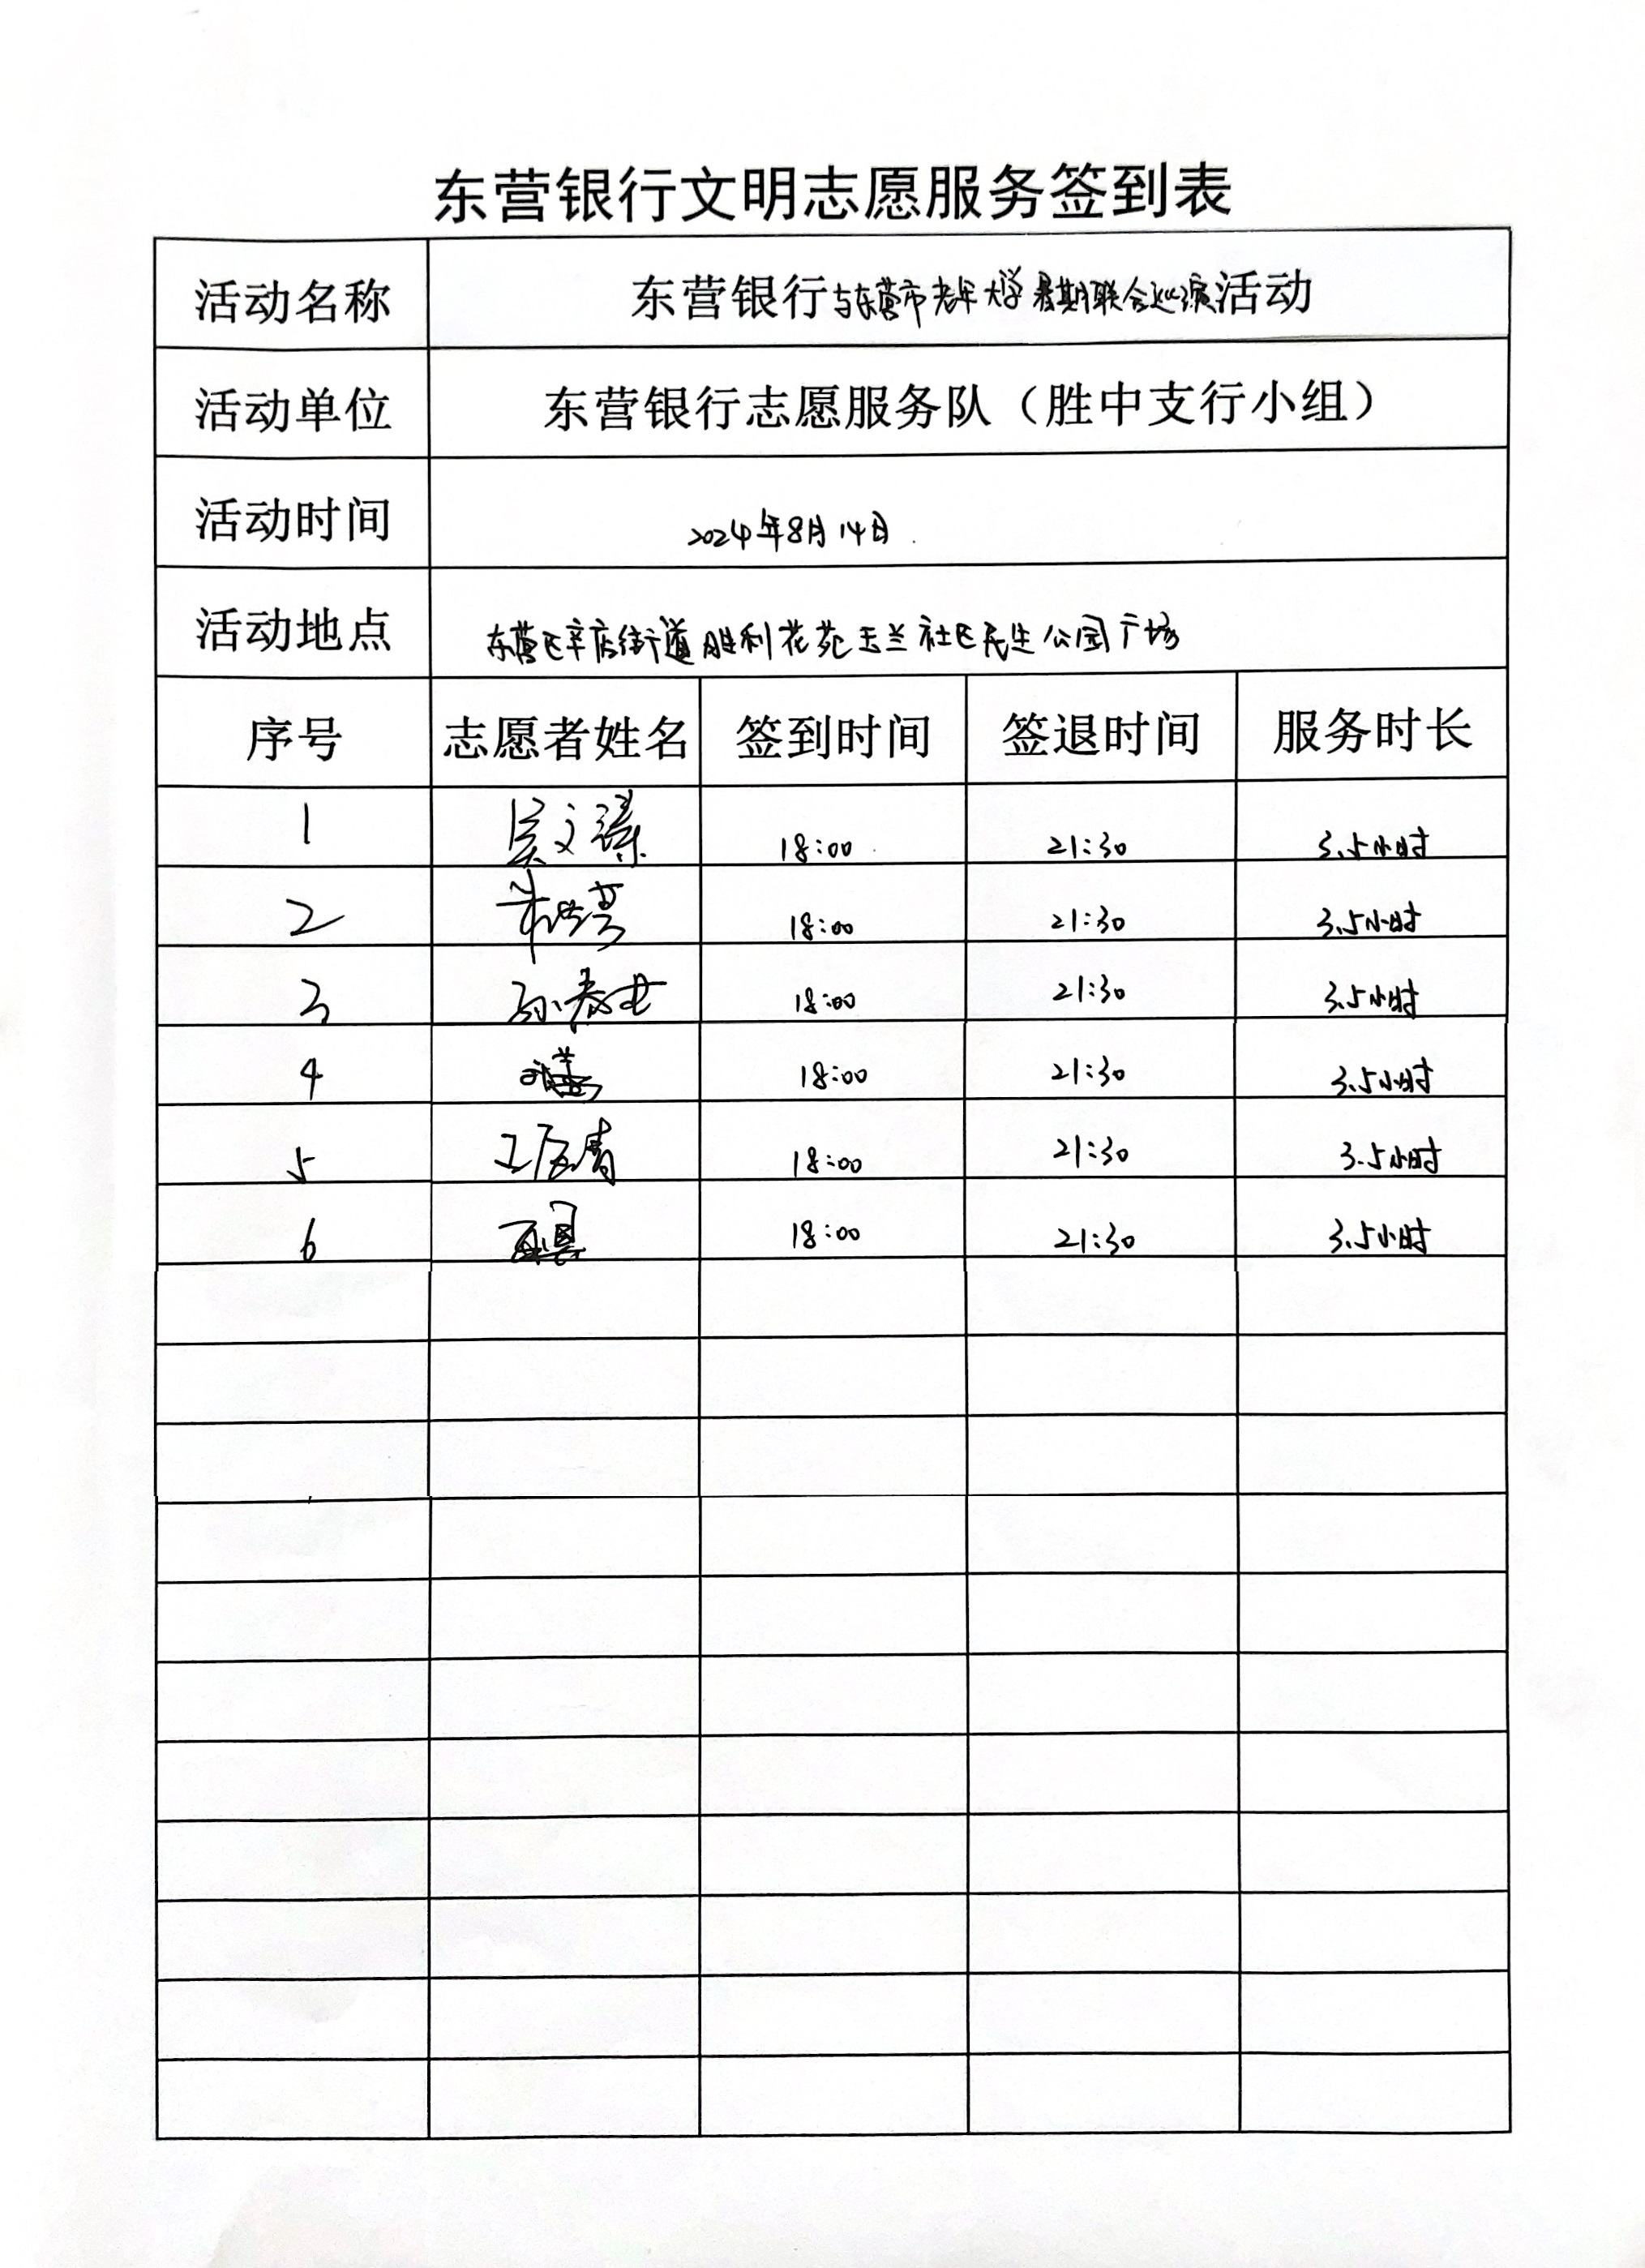 东营银行文明志愿服务签到表
活动名称 东营银行与东营市老年大学暑期联合巡演活动
活动单位 东营银行志愿服务队（胜中支行小组）
活动时间 2024年8月14日
活动地点 东营区辛店街道胜利花苑玉兰社区民生公园广场
序号 志愿者姓名 签到时间 签退时间 服务时长
1 18:00 21:30 3.5小时
2 18:00 21:30 3.5小时
3 18:00 21:30 3.5小时
4 18:00 21:30 3.5小时
5 18:00 21:30 3.5小时
6 18:00 21:30 3.5小时